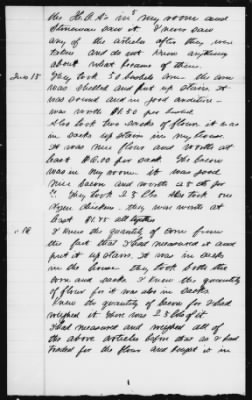 the H. O. A's in my room and
Stoneman saw it. I never saw
any of the articles after they were
taken and do not know anything
about what became of them.
Ques 15 They took 30 bushels corn - the corn
was shelled and put up stairs it
was sound and in good condition -
was worth $1.50 per bushel.
Also took two sacks of flour, it was
in sacks up stairs in my house.
It was nice flour and worth at
least $6.00 per sack. The bacon
was in my room it was good
nice bacon and worth 25 cts per
lb. They took 25 lbs also took one
dozen chickens. they were worth at
least $1.75 all together
" 16 I knew the quantity of corn from
the fact that I had measured it and
put it up stairs. It was in sacks
in the house they took both the
corn and sacks I knew the quantity
of flour for it was also in sacks.
I knew the quantity of bacon for I had
weighed it there was 25 lbs of it
I had measured and weighed all of
the above articles before that as I had
traded for the flour and bought it in